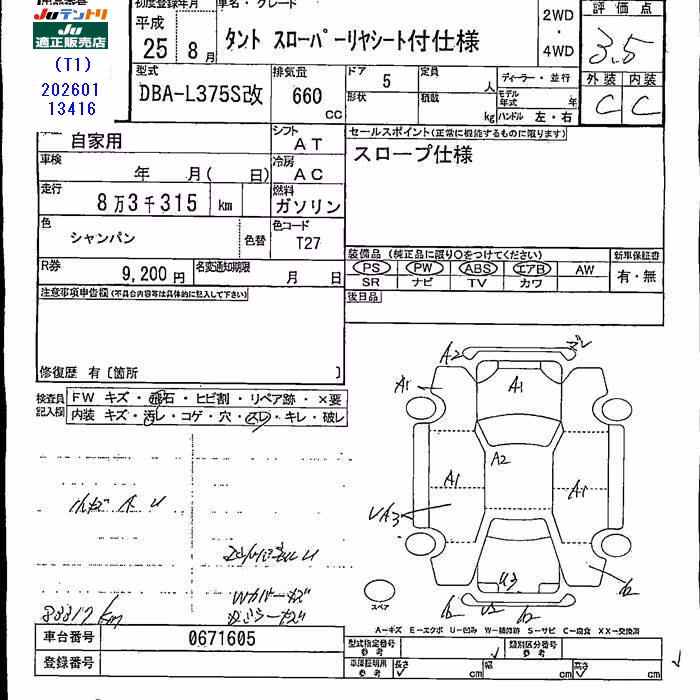 Juテントリ
JU
適正販売店
(T1)
202601
13416
初度登録年月
平成
25年 8月
車名・グレード
タント スローパーリヤシート付仕様
2WD
・
4WD
評価点
3.5
外装 内装
C C
型式
DBA-L375S改
排気量
660
cc
ドア 5
形状
定員 人
積載 kg
ディーラー・並行
モデル年式 年
ハンドル 左・右
自家用
シフト
AT
車検
年 月( 日)
冷房
AC
走行
8万3千315 km
燃料
ガソリン
色
シャンパン
色替
色コード
T27
R券
9,200円
名変通知期限
月 日
セールスポイント(正常に機能するものに限ります)
スロープ仕様
装備品 (純正品に限り○をつけてください)
PS PW ABS エアB AW
SR ナビ TV カワ
新車保証書
有・無
後日品
注意事項申告欄(不具合内容等は具体的に記入して下さい)
修復歴 有〔箇所 〕
検査員
記入欄
FW キズ・飛石・ヒビ割・リペア跡・×要
内装 キズ・汚レ・コゲ・穴・スレ・キレ・破レ
A2
A1
A1
A2
A1
A1
UA3
U3
スペア
A-キズ E-エクボ U-凹み W-補修跡 S-サビ C-腐食 XX-交換済
83317km
車台番号
0671605
登録番号
型式指定番号
参考
類別区分番号
参考
車庫証明用
参考
長さ cm
幅 cm
高さ cm